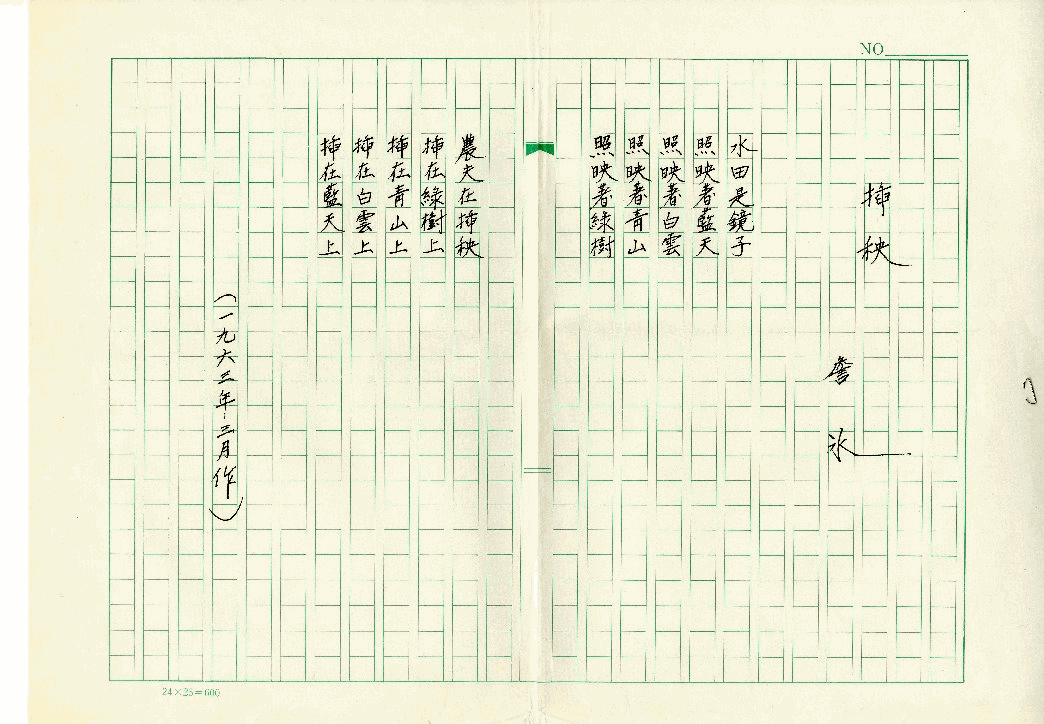 NO
插秧
詹冰
水田是鏡子
照映著藍天
照映著白雲
照映著青山
照映著綠樹
農夫在插秧
插在綠樹上
插在青山上
插在白雲上
插在藍天上
(一九六三年三月作)
24×25=600